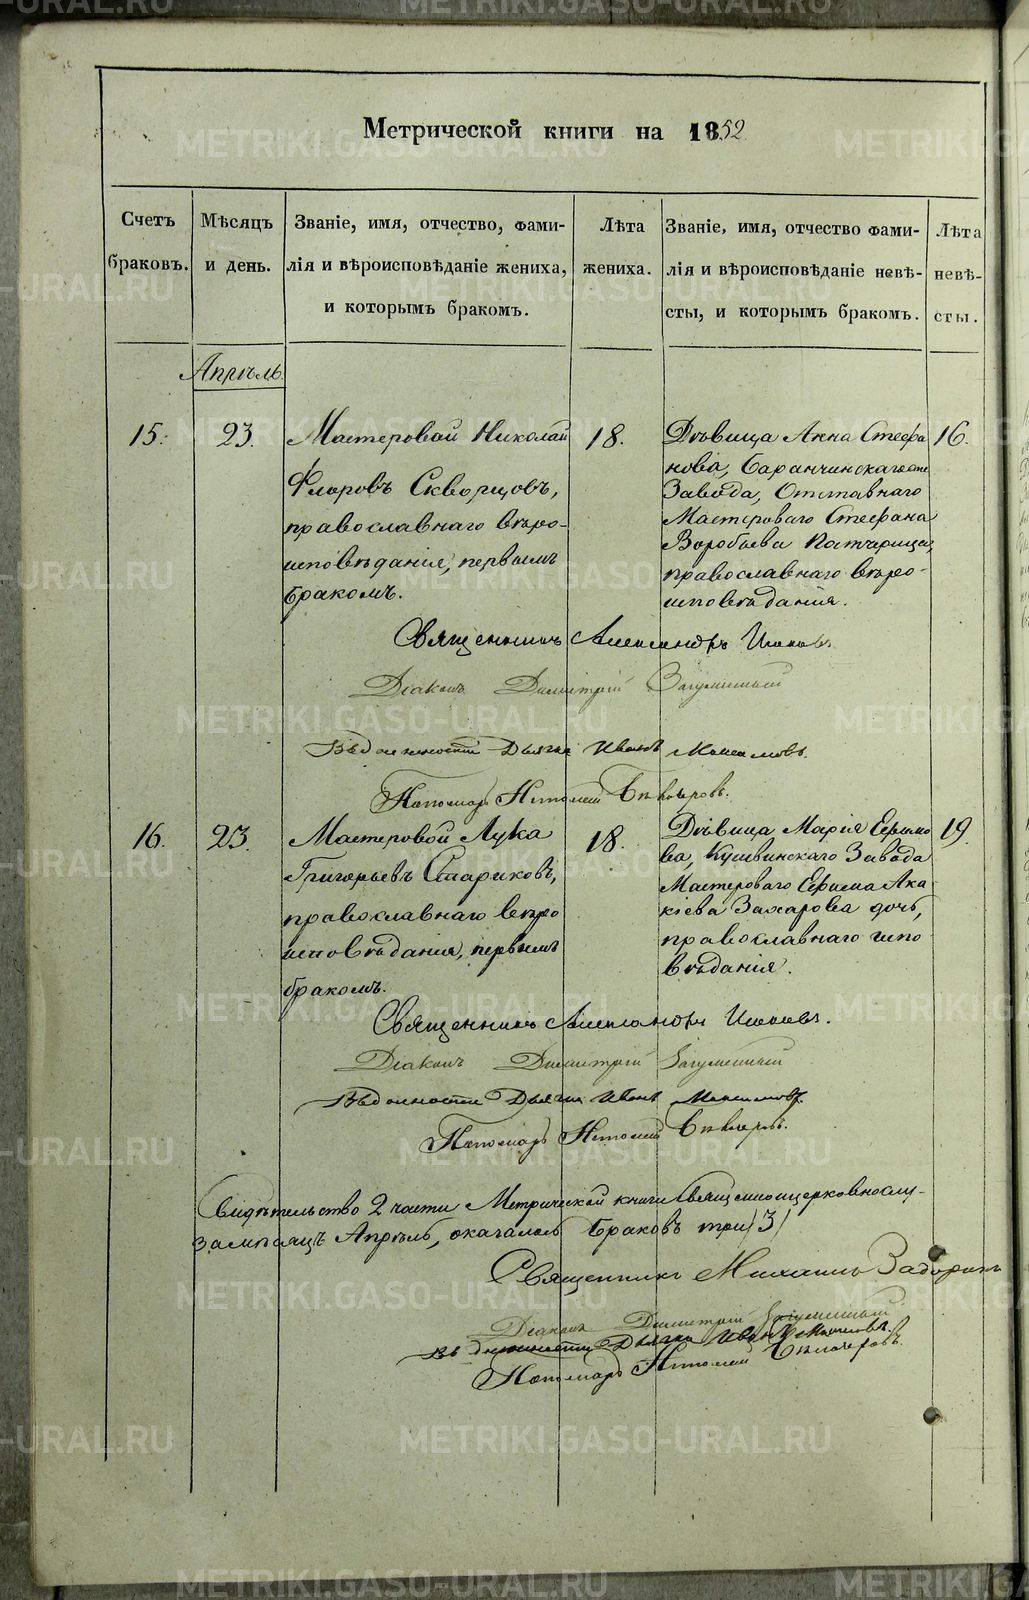 Метрической книги на 1852
Счетъ браковъ.
Мѣсяцъ и день.
Званіе, имя, отчество, фами-
лія и вѣроисповѣданіе жениха,
и которымъ бракомъ.
Лѣта жениха.
Званіе, имя, отчество фами-
лія и вѣроисповѣданіе невѣ-
сты, и которымъ бракомъ.
Лѣта невѣ-
сты.
Апрѣль
15.
23.
Мастеровой Николай
Флоровъ Скворцовъ,
православнаго вѣро-
исповѣданія, первымъ
бракомъ.
18.
Дѣвица Анна Стефа
нова, Баранчинскаго
Завода, Отставнаго
Мастероваго Стефана
Воробьева Патчерица,
православнаго вѣро-
исповѣданія.
16.
Священникъ Александръ
Діаконъ Димитрій
Въ должности Дьячка Иванъ Максимовъ.
Пономарь
16.
23.
Мастеровой Лука
Григорьевъ Стариковъ,
православнаго вѣро
исповѣданія, первымъ
бракомъ.
18.
Дѣвица Марія Ефимо
ва, Кушвинскаго Завода
Мастероваго Ефима Ака
кіева Захарова дочь,
православнаго испо
вѣданія.
19.
Священникъ Александръ
Діаконъ Димитрій
Въ должности Дьячка Иванъ Максимовъ.
Пономарь
Свидѣтельство 2 части Метрической книги Священноцерковнослу-
за мѣсяцъ Апрѣль, оказалось браковъ три /3/
Священникъ Михаилъ
Діаконъ Димитрій
Въ должности Дьячка Иванъ Максимовъ.
Пономарь
METRIKI.GASO-URAL.RU